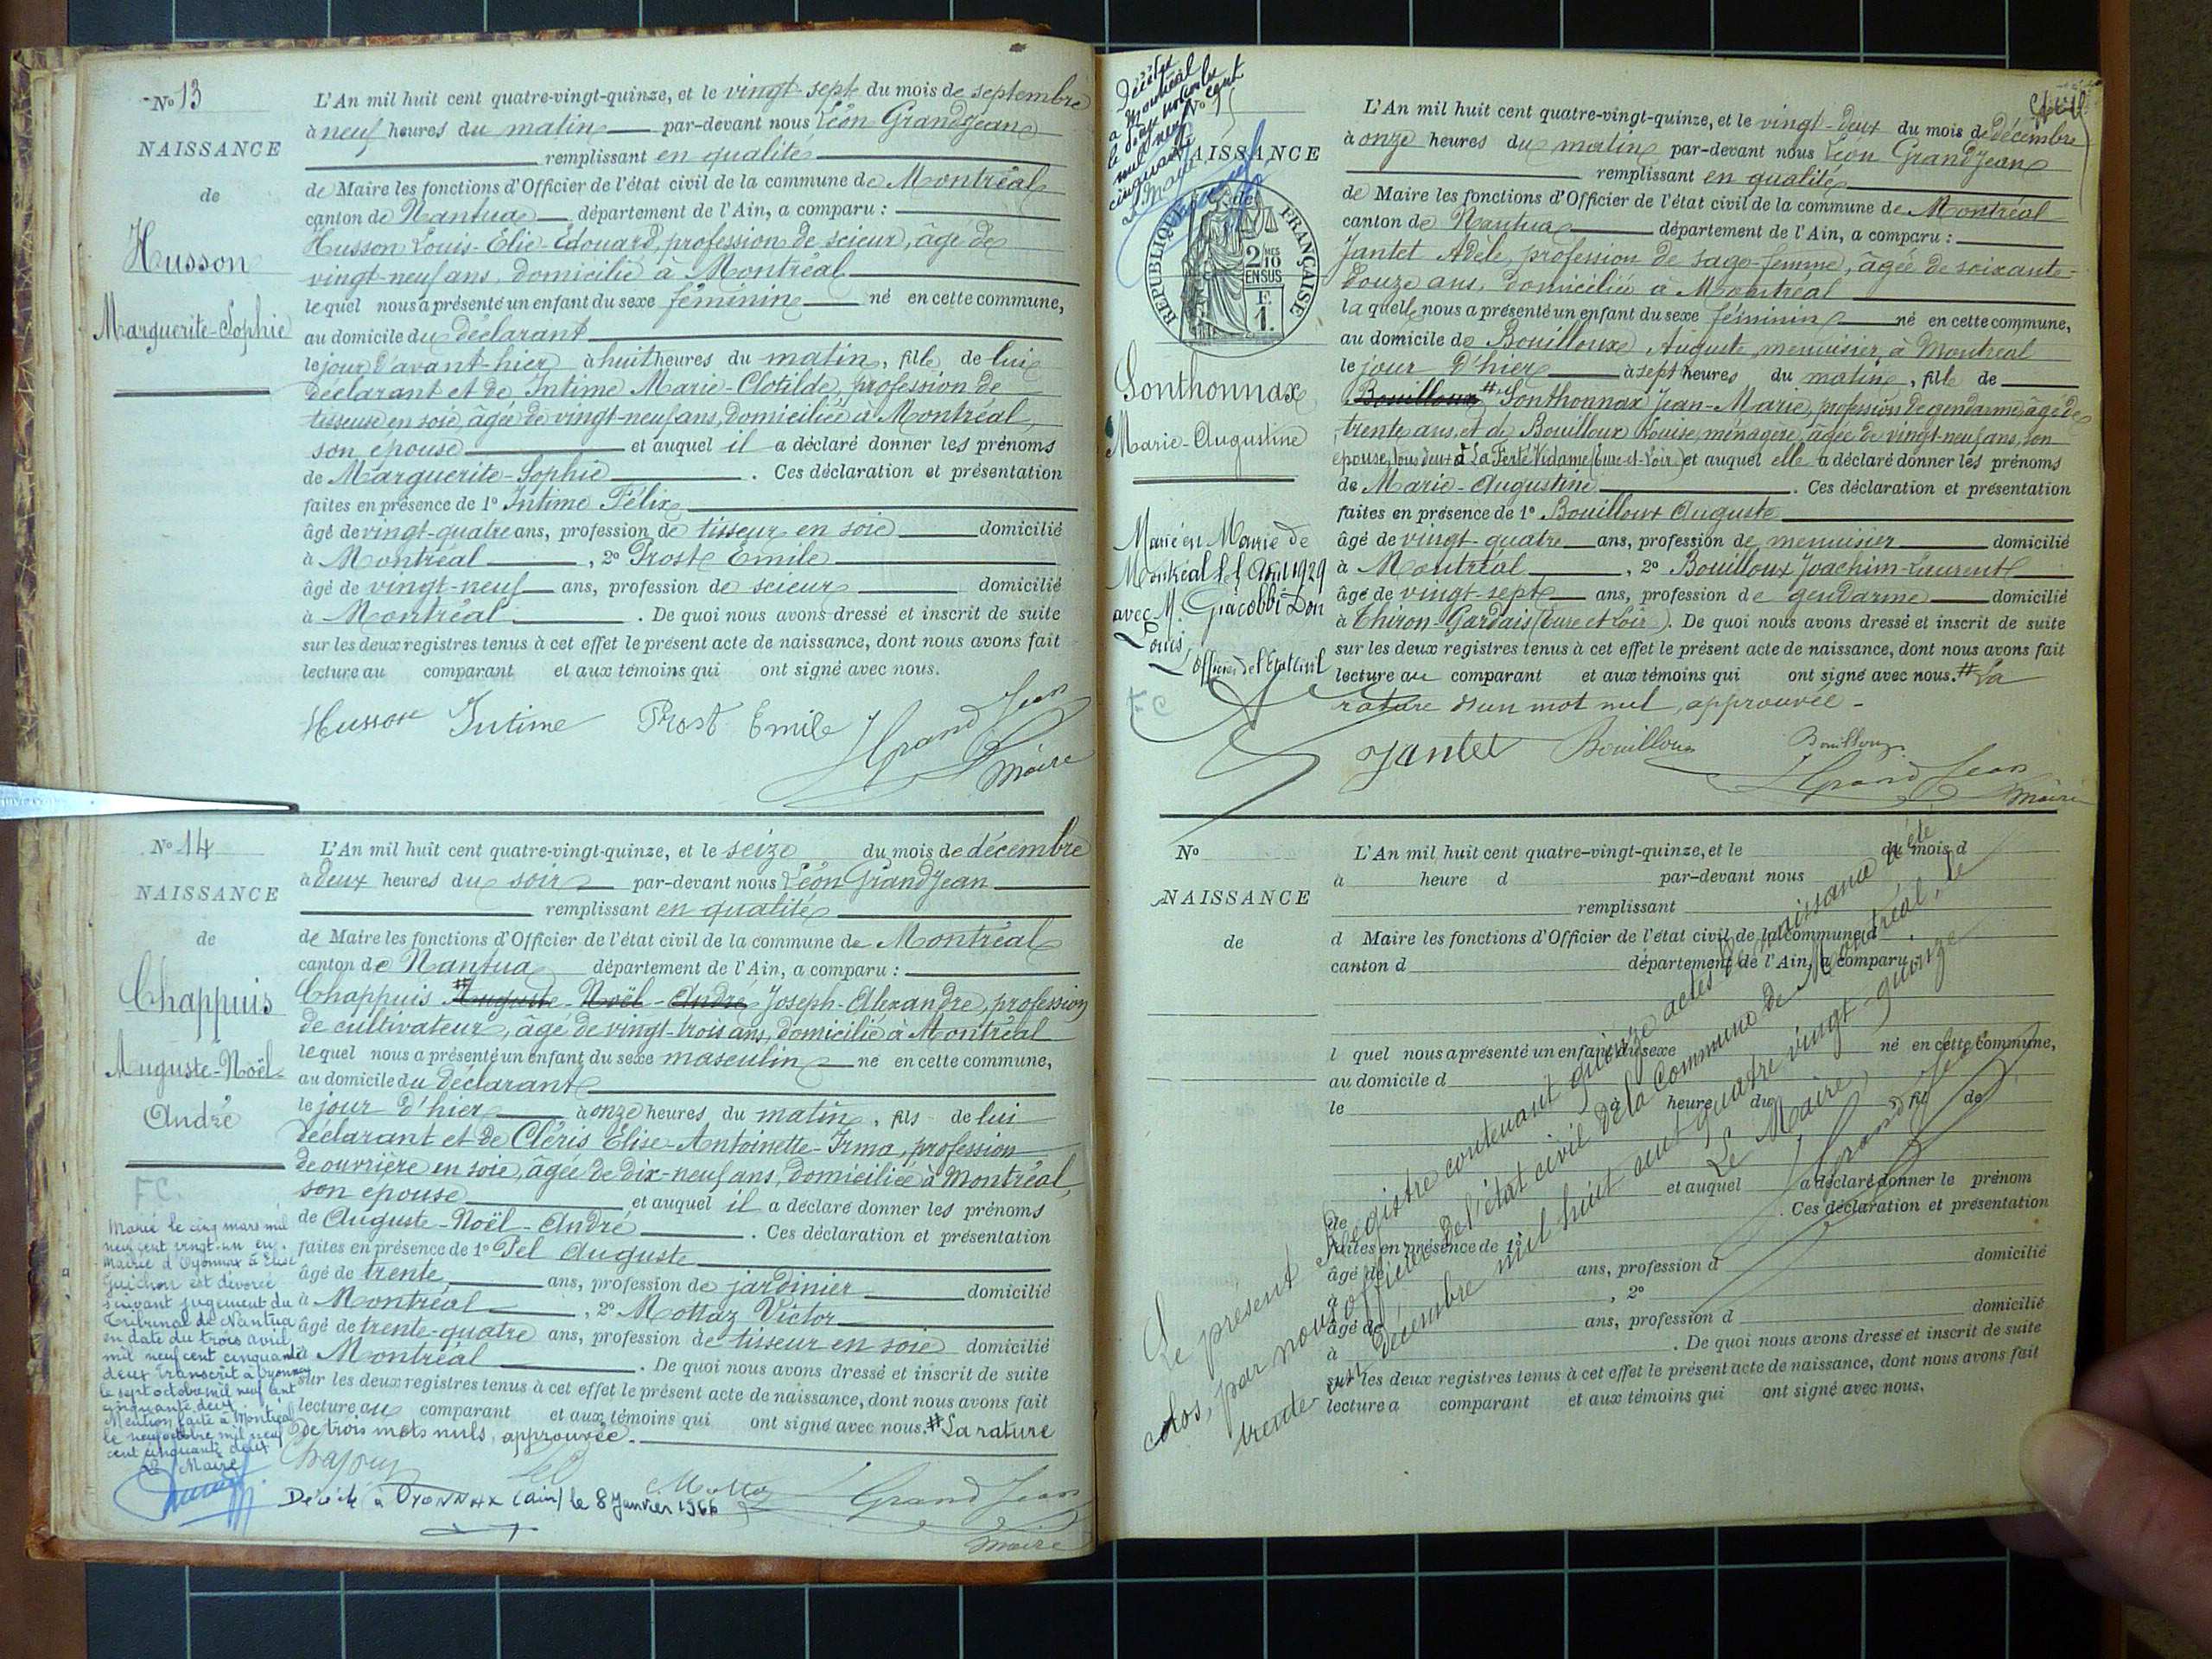 No 13
NAISSANCE
de
Husson
Marguerite-Sophie
L'An mil huit cent quatre-vingt-quinze, et le vingt-sept du mois de septembre
à neuf heures du matin par-devant nous Léon GrandJean
remplissant en qualité
de Maire les fonctions d'Officier de l'état civil de la commune de Montréal
canton de Nantua département de l'Ain, a comparu :
Husson Louis-Elie-Edouard, profession de scieur, âgé de
vingt-neuf ans, domicilié à Montréal
lequel nous a présenté un enfant du sexe féminin né en cette commune,
au domicile du déclarant
le jour d'avant-hier à huit heures du matin, fille de lui
déclarant et de Intime Marie-Clotilde, profession de
tisseuse en soie, âgée de vingt-neuf ans, domiciliée à Montréal,
son épouse et auquel il a déclaré donner les prénoms
de Marguerite-Sophie . Ces déclaration et présentation
faites en présence de 1º Intime Félix
âgé de vingt-quatre ans, profession de tisseur en soie domicilié
à Montréal , 2º Prost Emile
âgé de vingt-neuf ans, profession de scieur domicilié
à Montréal . De quoi nous avons dressé et inscrit de suite
sur les deux registres tenus à cet effet le présent acte de naissance, dont nous avons fait
lecture au comparant et aux témoins qui ont signé avec nous.
Husson Intime Prost Emile GrandJean
Maire
No 14
NAISSANCE
de
Chappuis
Auguste-Noël
André
L'An mil huit cent quatre-vingt-quinze, et le seize du mois de décembre
à deux heures du soir par-devant nous Léon GrandJean
remplissant en qualité
de Maire les fonctions d'Officier de l'état civil de la commune de Montréal
canton de Nantua département de l'Ain, a comparu :
Chappuis # Auguste-Noël-André Joseph-Alexandre, profession
de cultivateur, âgé de vingt-trois ans, domicilié à Montréal
lequel nous a présenté un enfant du sexe masculin né en cette commune,
au domicile du déclarant
le jour d'hier à onze heures du matin, fils de lui
déclarant et de Cléris Elise-Antoinette-Irma, profession
de ouvrière en soie, âgée de dix-neuf ans, domiciliée à Montréal,
son épouse et auquel il a déclaré donner les prénoms
de Auguste-Noël-André . Ces déclaration et présentation
faites en présence de 1º Pel Auguste
âgé de trente ans, profession de jardinier domicilié
à Montréal , 2º Mottaz Victor
âgé de trente-quatre ans, profession de tisseur en soie domicilié
à Montréal . De quoi nous avons dressé et inscrit de suite
sur les deux registres tenus à cet effet le présent acte de naissance, dont nous avons fait
lecture au comparant et aux témoins qui ont signé avec nous. # La rature
de trois mots nuls, approuvée.
GrandJean
Maire
F.C.
Marié le cinq mars mil
neuf cent vingt-un en
mairie d'Oyonnax à Elise
Guichon est divorcé
suivant jugement du
Tribunal de Nantua
en date du trois avril
mil neuf cent cinquante
deux transcrit à Oyonnax
le sept octobre mil neuf cent
cinquante deux.
Mention faite à Montréal
le neuf octobre mil neuf
cent cinquante deux
Le Maire
Décédé à OYONNAX (Ain) le 8 Janvier 1966
Décédée
à Montréal
le deux novembre
mil neuf cent
cinquante
No 15
NAISSANCE
de
RÉPUBLIQUE FRANÇAISE
2/10 MES
EN SUS
F.
1.
Sonthonnax
Marie-Augustine
L'An mil huit cent quatre-vingt-quinze, et le vingt-deux du mois de décembre
à onze heures du matin par-devant nous Léon GrandJean
remplissant en qualité
de Maire les fonctions d'Officier de l'état civil de la commune de Montréal
canton de Nantua département de l'Ain, a comparu :
Jantet Adèle, profession de sage-femme, âgée de soixante-
douze ans, domiciliée à Montréal
laquelle nous a présenté un enfant du sexe féminin né en cette commune,
au domicile de Bouilloux Auguste, menuisier, à Montréal
le jour d'hier à sept heures du matin, fille de
Bouilloux # Sonthonnax Jean-Marie, profession de gendarme, âgé de
trente ans, et de Bouilloux Louise, ménagère, âgée de vingt-neuf ans, son
épouse, tous deux à La Ferté Vidame (Eure-et-Loir) et auquel elle a déclaré donner les prénoms
de Marie-Augustine . Ces déclaration et présentation
faites en présence de 1º Bouilloux Auguste
âgé de vingt-quatre ans, profession de menuisier domicilié
à Montréal , 2º Bouilloux Joachim-Laurent
âgé de vingt-sept ans, profession de gendarme domicilié
à Thiron-Gardais (Eure et Loir). De quoi nous avons dressé et inscrit de suite
sur les deux registres tenus à cet effet le présent acte de naissance, dont nous avons fait
lecture au comparant et aux témoins qui ont signé avec nous. # La
rature d'un mot nul, approuvée -
Jantet Bouilloux Bouilloux
GrandJean
Maire
Marié en Mairie de
Montréal le Avril 1929
avec M. Giacobbi Don
Louis
L'Officier de l'Etat Civil
F C
No
NAISSANCE
de
L'An mil huit cent quatre-vingt-quinze, et le du mois d
à heure d par-devant nous
remplissant
d Maire les fonctions d'Officier de l'état civil de la commune d
canton d département de l'Ain, a comparu
l quel nous a présenté un enfant du sexe né en cette commune,
au domicile d
le à heure du , fil de
et auquel a déclaré donner le prénom
de . Ces déclaration et présentation
faites en présence de 1º
âgé de ans, profession d domicilié
à , 2º
âgé de ans, profession d domicilié
à . De quoi nous avons dressé et inscrit de suite
sur les deux registres tenus à cet effet le présent acte de naissance, dont nous avons fait
lecture a comparant et aux témoins qui ont signé avec nous.
Le présent Registre contenant quinze actes de naissance a été
clos, par nous officier de l'état civil de la commune de Montréal, le
trente-un décembre mil huit cent quatre vingt-quinze
Le Maire,
GrandJean